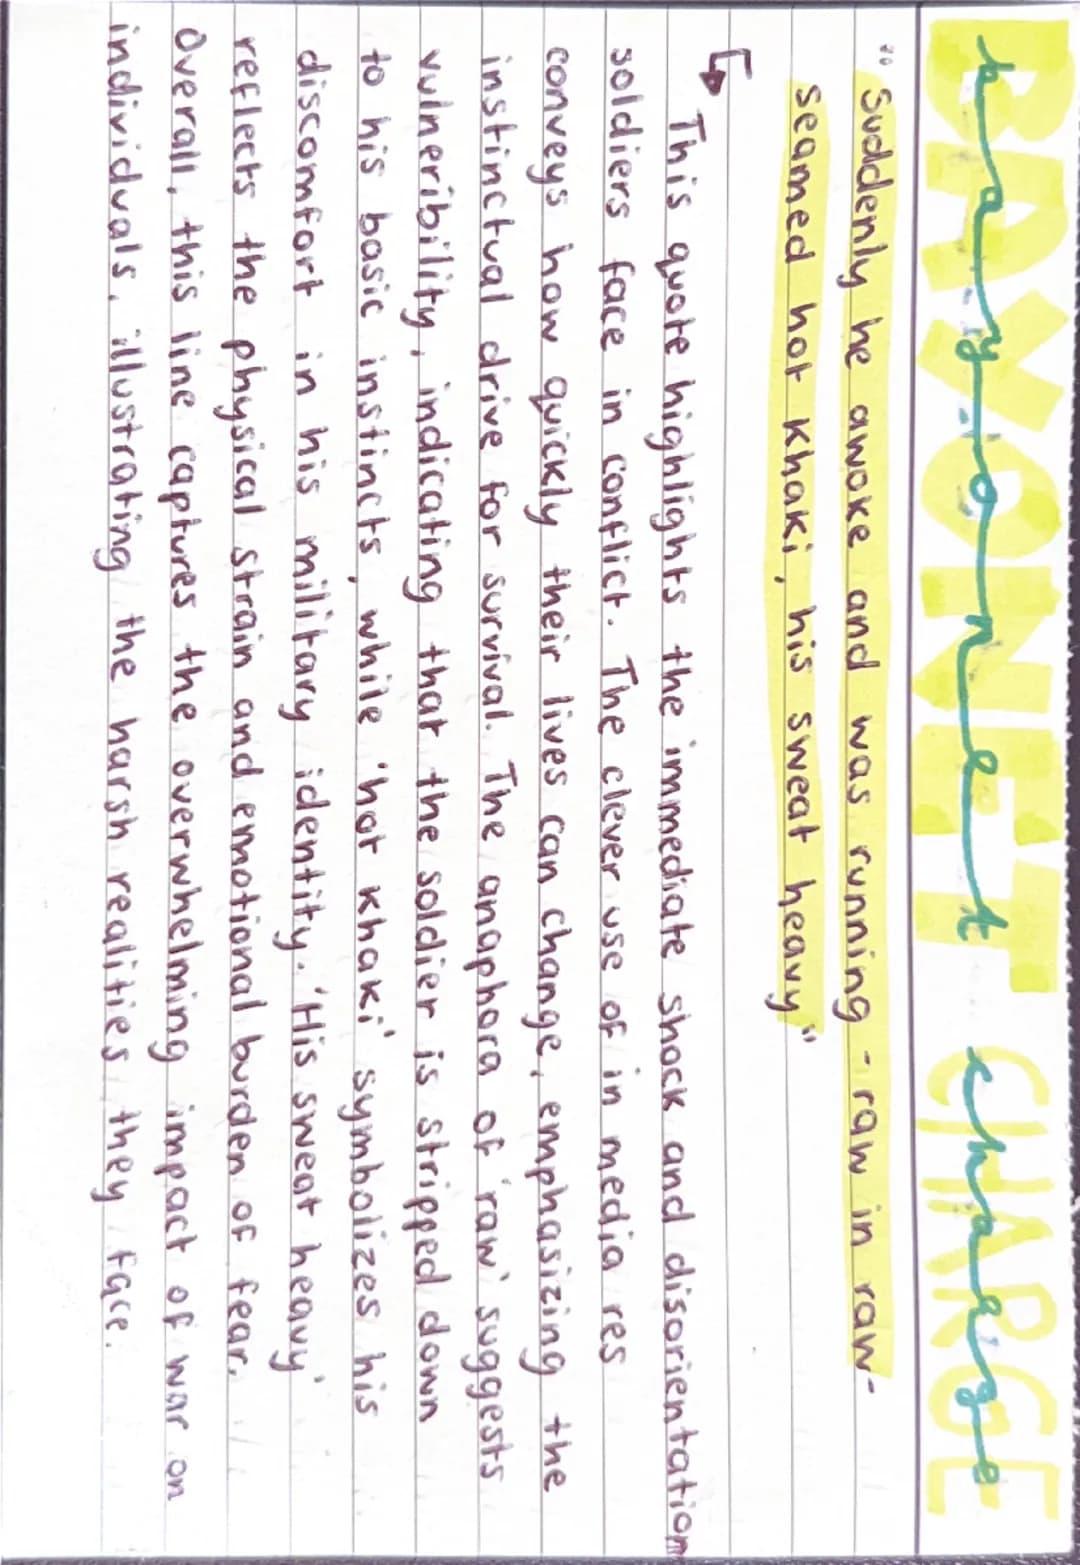 BAYONET CHARGE
bayonet charge
"Suddenly he awoke and was running - raw in raw-
seamed hot khaki, his sweat heavy"
↳ This quote highlights the immediate shock and disorientation
soldiers face in conflict. The clever use of in media res
conveys how quickly their lives can change, emphasizing the
instinctual drive for survival. The anaphora of 'raw' suggests
vulneribility, indicating that the soldier is stripped down
to his basic instincts, while 'hot khaki' symbolizes his
discomfort in his military identity. 'His sweat heavy'
reflects the physical strain and emotional burden of fear.
Overall, this line captures the overwhelming impact of war on
individuals, illustrating the harsh realities they face.